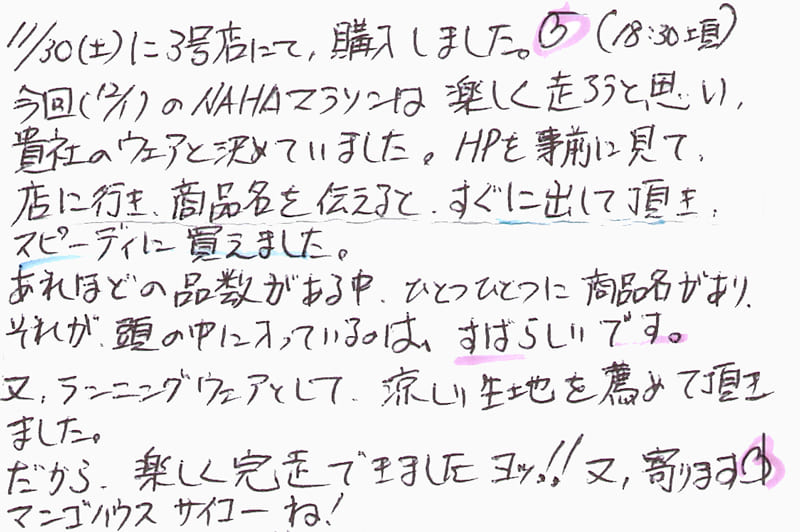 11/30(土)に3号店にて、購入しました。(18:30頃)
今回(12/1)のNAHAマラソンは楽しく走ろうと思い、
貴社のウェアと決めていました。HPを事前に見て、
店に行き、商品名を伝えると、すぐに出して頂き、
スピーディに買えました。
あれほどの品数がある中、ひとつひとつに商品名があり、
それが、頭の中に入っているのは、すばらしいです。
又、ランニングウェアとして、涼しい生地を薦めて頂き
ました。
だから、楽しく完走できましたヨッ!! 又、寄ります
マンゴハウス サイコーね!